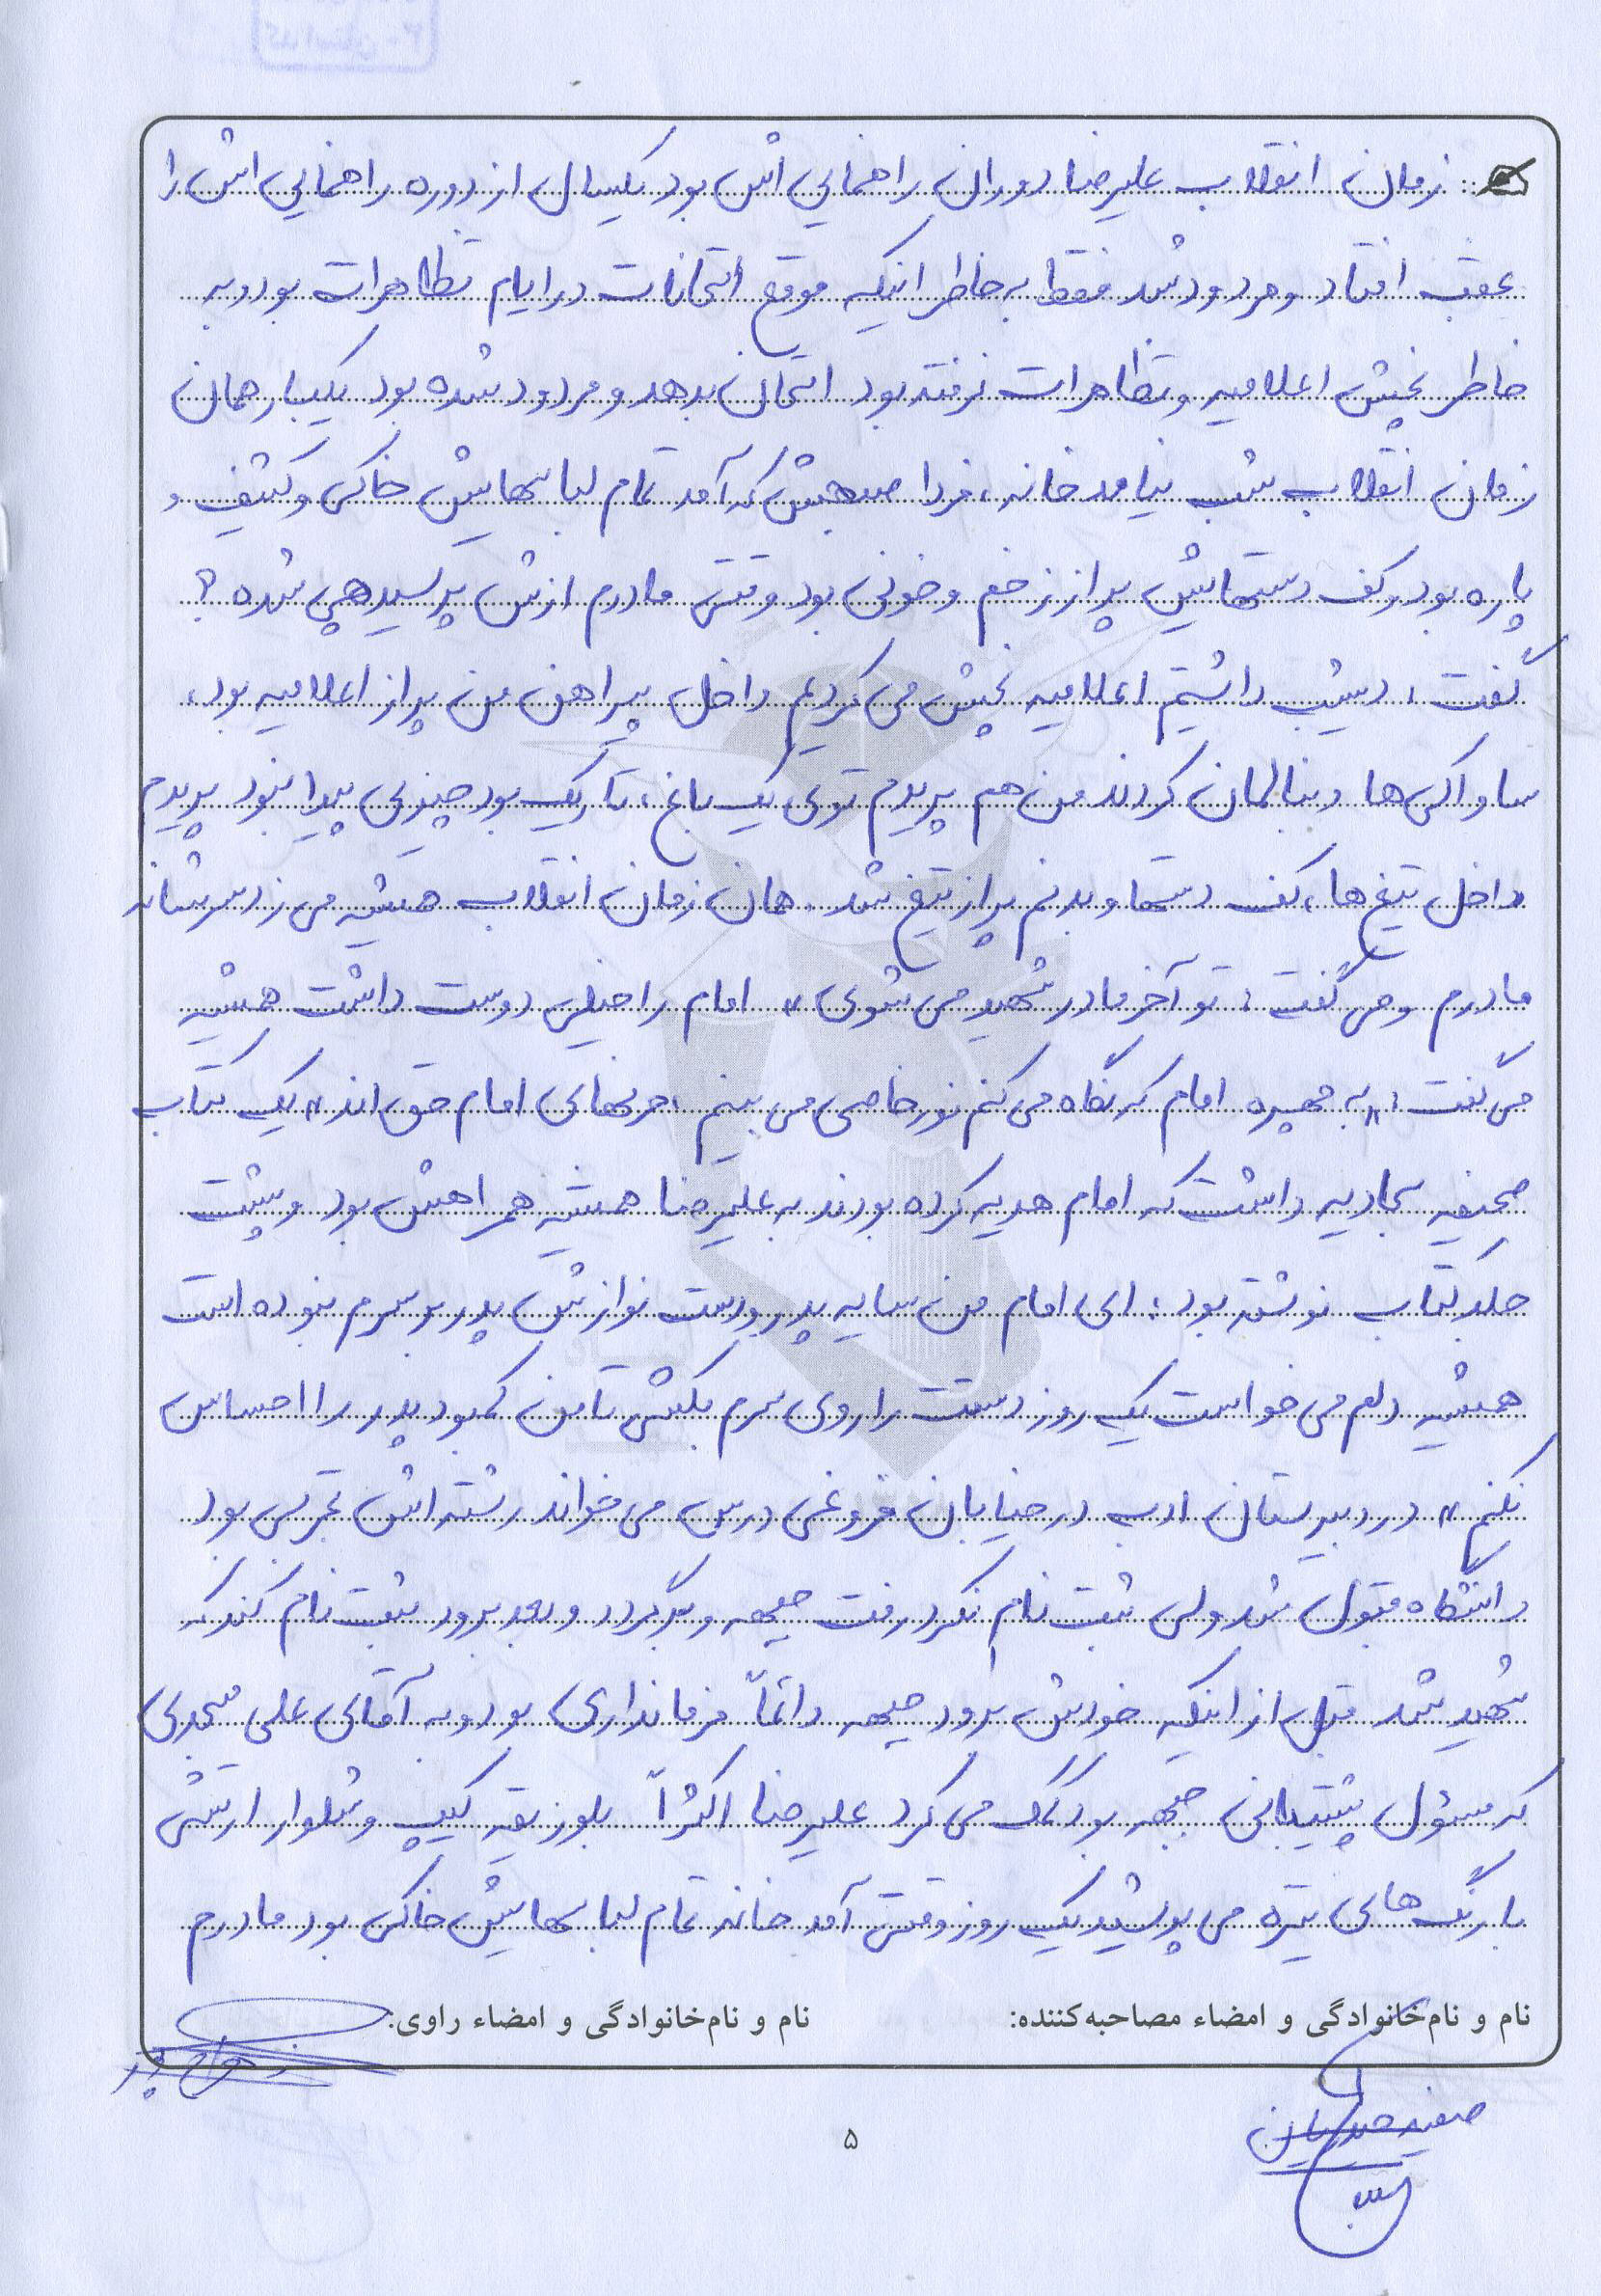 زمان انقلاب علیرضا دوران راهنمایی اش بود یکسال از دوره راهنمایی اش را
عقب افتاد و مردود شد فقط به خاطر اینکه موقع امتحانات در ایام تظاهرات بود و به
خاطر پخش اعلامیه و تظاهرات نرفته بود امتحان بدهد و مردود شده بود یکبار همان
زمان انقلاب شب نیامد خانه، فردا صبحش که آمد تمام لباسهایش خاکی و کثیف و
پاره بود و کف دستهایش پر از زخم و خونی بود وقتی مادرم ازش پرسید چی شده؟
گفت: دیشب داشتیم اعلامیه پخش می کردیم داخل پیراهن من پر از اعلامیه بود،
ساواکی ها دنبالمان کردند من هم پریدم توی یک باغ، تاریک بود چیزی پیدا نبود پریدم
داخل تیغ ها، کف دستها و بدنم پر از تیغ شد. همان زمان انقلاب همیشه می زد سر شانه
مادرم و می گفت: تو آخر مادر شهید می شوی» امام را خیلی دوست داشت همیشه
می گفت: «به چهره امام که نگاه می کنم نور خاصی می بینم، حرفهای امام حق اند» یک کتاب
صحیفه سجادیه داشت که امام هدیه کرده بودند به علیرضا همیشه همراهش بود و پشت
جلد کتاب نوشته بود: ای امام من سایه پدر و دست نوازش پدر بر سرم نبوده است
همیشه دلم می خواست یک روز دستت را روی سرم بکشی تا من کمبود پدر را احساس
نکنم» در دبیرستان ادب در خیابان فروغی درس می خواند رشته اش تجربی بود
دانشگاه قبول شد ولی ثبت نام نکرد رفت جبهه و برگردد و بعد برود ثبت نام کند که
شهید شد قبل از اینکه خودش برود جبهه دائماً فرمانداری بود و به آقای علی مسجدی
که مسئول پشتیبانی جبهه بود کمک می کرد علیرضا اکثراً بلوز یقه کیپ و شلوار ارتشی
با رنگ های تیره می پوشید یک روز وقتی آمد خانه تمام لباسهایش خاکی بود مادرم
نام و نام‌خانوادگی و امضاء مصاحبه‌کننده:
نام و نام‌خانوادگی و امضاء راوی:
۵